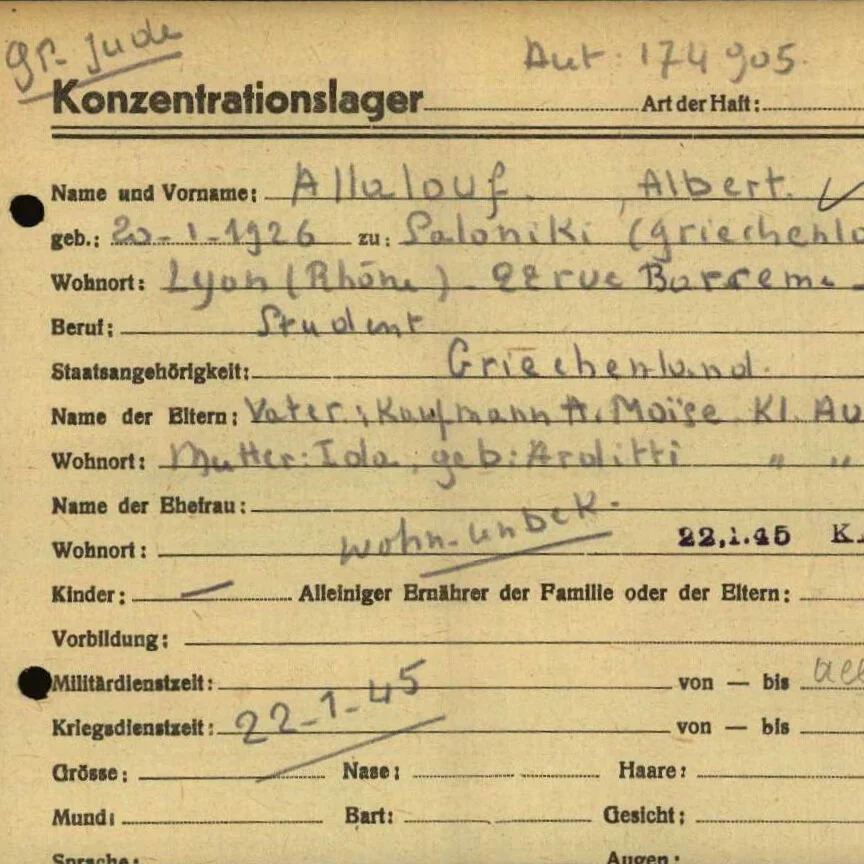 gr. Jude
Aut: 174905.
Konzentrationslager Art der Haft:
Name und Vorname: Allalouf, Albert.
geb.: 20-1-1926 zu: Saloniki (Griechenla
Wohnort: Lyon (Rhône) - 22 rue
Beruf: Student
Staatsangehörigkeit: Griechenland.
Name der Eltern: Vater: Kaufmann A. Moïse Kl. Au
Wohnort: Mutter: Ida, geb: Arditti " "
Name der Ehefrau:
Wohnort: wohn. unbek. 22.1.45 K.
Kinder: — Alleiniger Ernährer der Familie oder der Eltern:
Vorbildung:
Militärdienstzeit: von — bis
Kriegsdienstzeit: 22-1-45 von — bis
Grösse: Nase: Haare:
Mund: Bart: Gesicht:
Sprache: Augen: